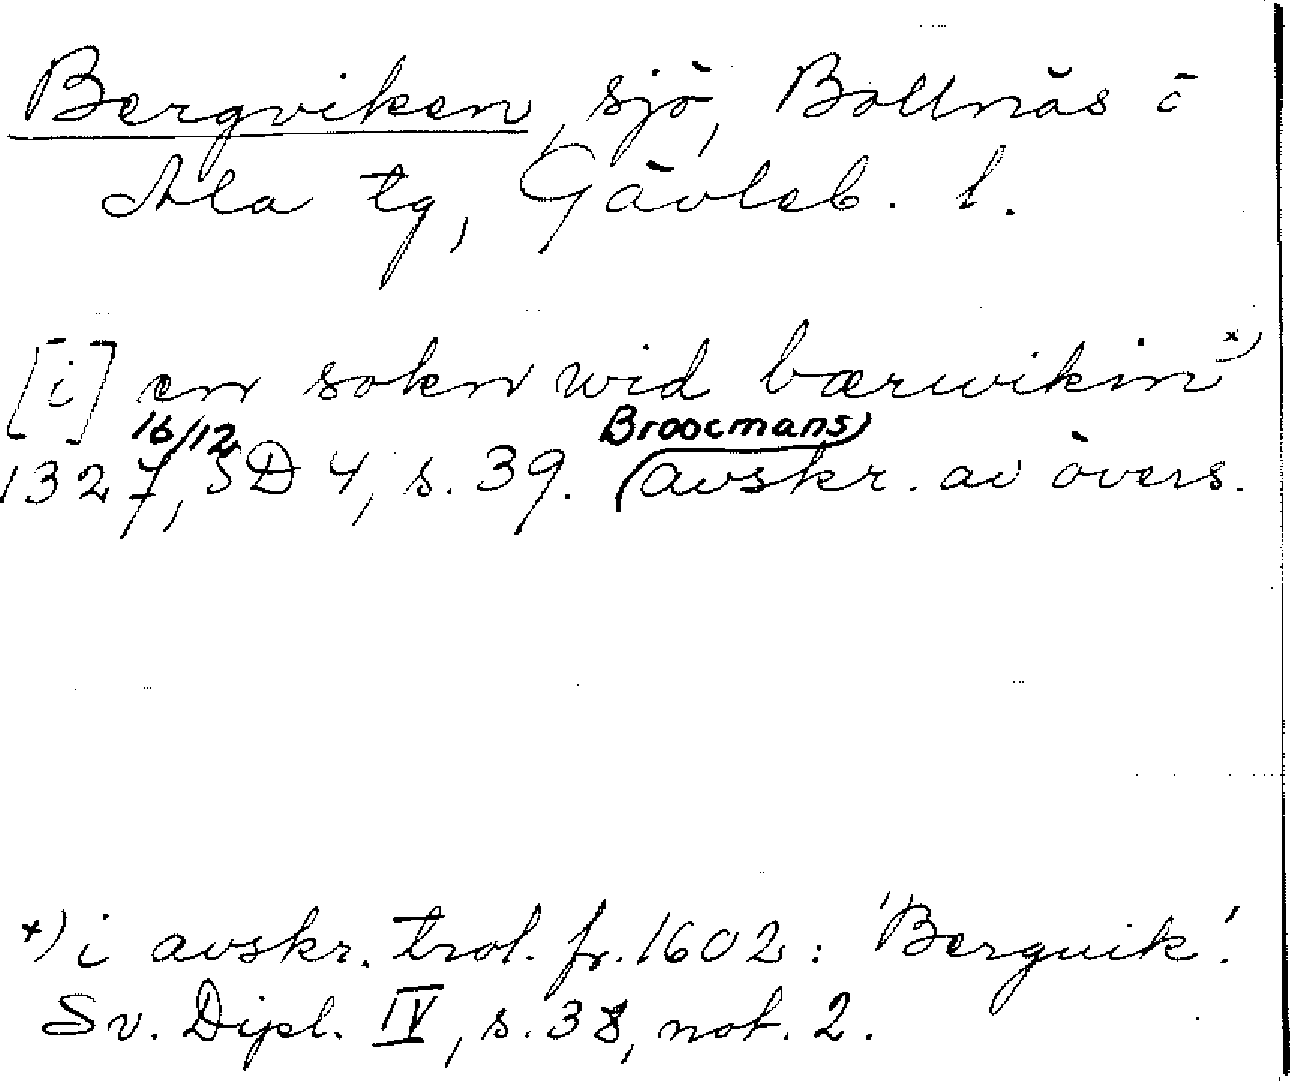 Bergviken, sjö, Bollnäs i
Ala tg, Gävleb. l.
[i] en sokn wid bærwikin x)
16/12 Broocmans
1327, SD 4, s. 39. avskr. av övers.
x) i avskr. trol. fr. 1602: "Berguik".
Sv. Dipl. IV, s. 38, not. 2.